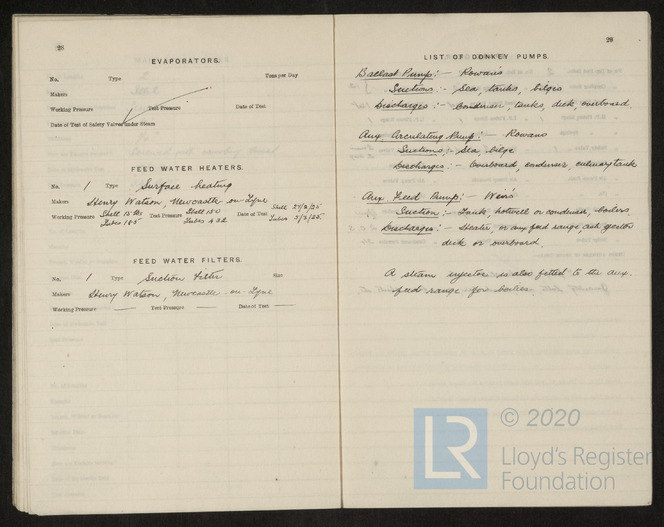 28
EVAPORATORS.
No. Type Tons per Day
Makers
Working Pressure Test Pressure Date of Test
Date of Test of Safety Valves under Steam
FEED WATER HEATERS.
No. 1 Type Surface heating
Makers Henry Watson, Newcastle-on-Tyne
Working Pressure Shell 15 lbs Tubes 185 Test Pressure Shell 150 Tubes 432 Date of Test Shell Tubes
FEED WATER FILTERS.
No. 1 Type Suction Filter Size
Makers Henry Watson, Newcastle-on-Tyne
Working Pressure — Test Pressure — Date of Test —
29
LIST OF DONKEY PUMPS.
Ballast Pump:- Rowans
Suctions:- Sea, tanks, bilges
Discharges:- Condenser, tanks, deck, overboard.
Aux. Circulating Pump:- Rowans
Suctions:- Sea, bilge
Discharges:- Overboard, condenser, culinary tank
Aux Feed Pump:- Weirs
Suction:- Tank, hotwell or condenser, boilers
Discharges:- Heater, or aux feed range, ash ejector
deck or overboard.
A steam injector is also fitted to the aux.
feed range for boilers.
LR
© 2020
Lloyd's Register
Foundation